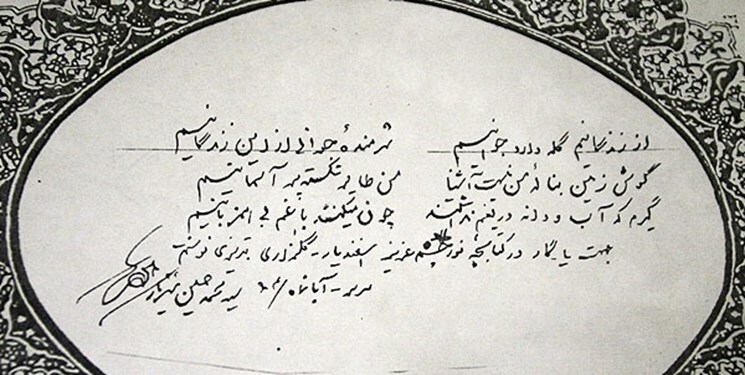 از زندگانیم گله دارد جوانیم شرمندهٔ جوانی از این زندگانیم
گوش زمین بنالهٔ من نیست آشنا من طایر شکسته پر آسمانیم
گیرم که آب و دانه دریغم نداشتند چون میکنند با غم بی همزبانیم
جهت یادگار در کتابچه نورچشم عزیز اسفندیار - گلمزاری تبریزی نوشتم
آبانماه / سید محمد حسین شهریار